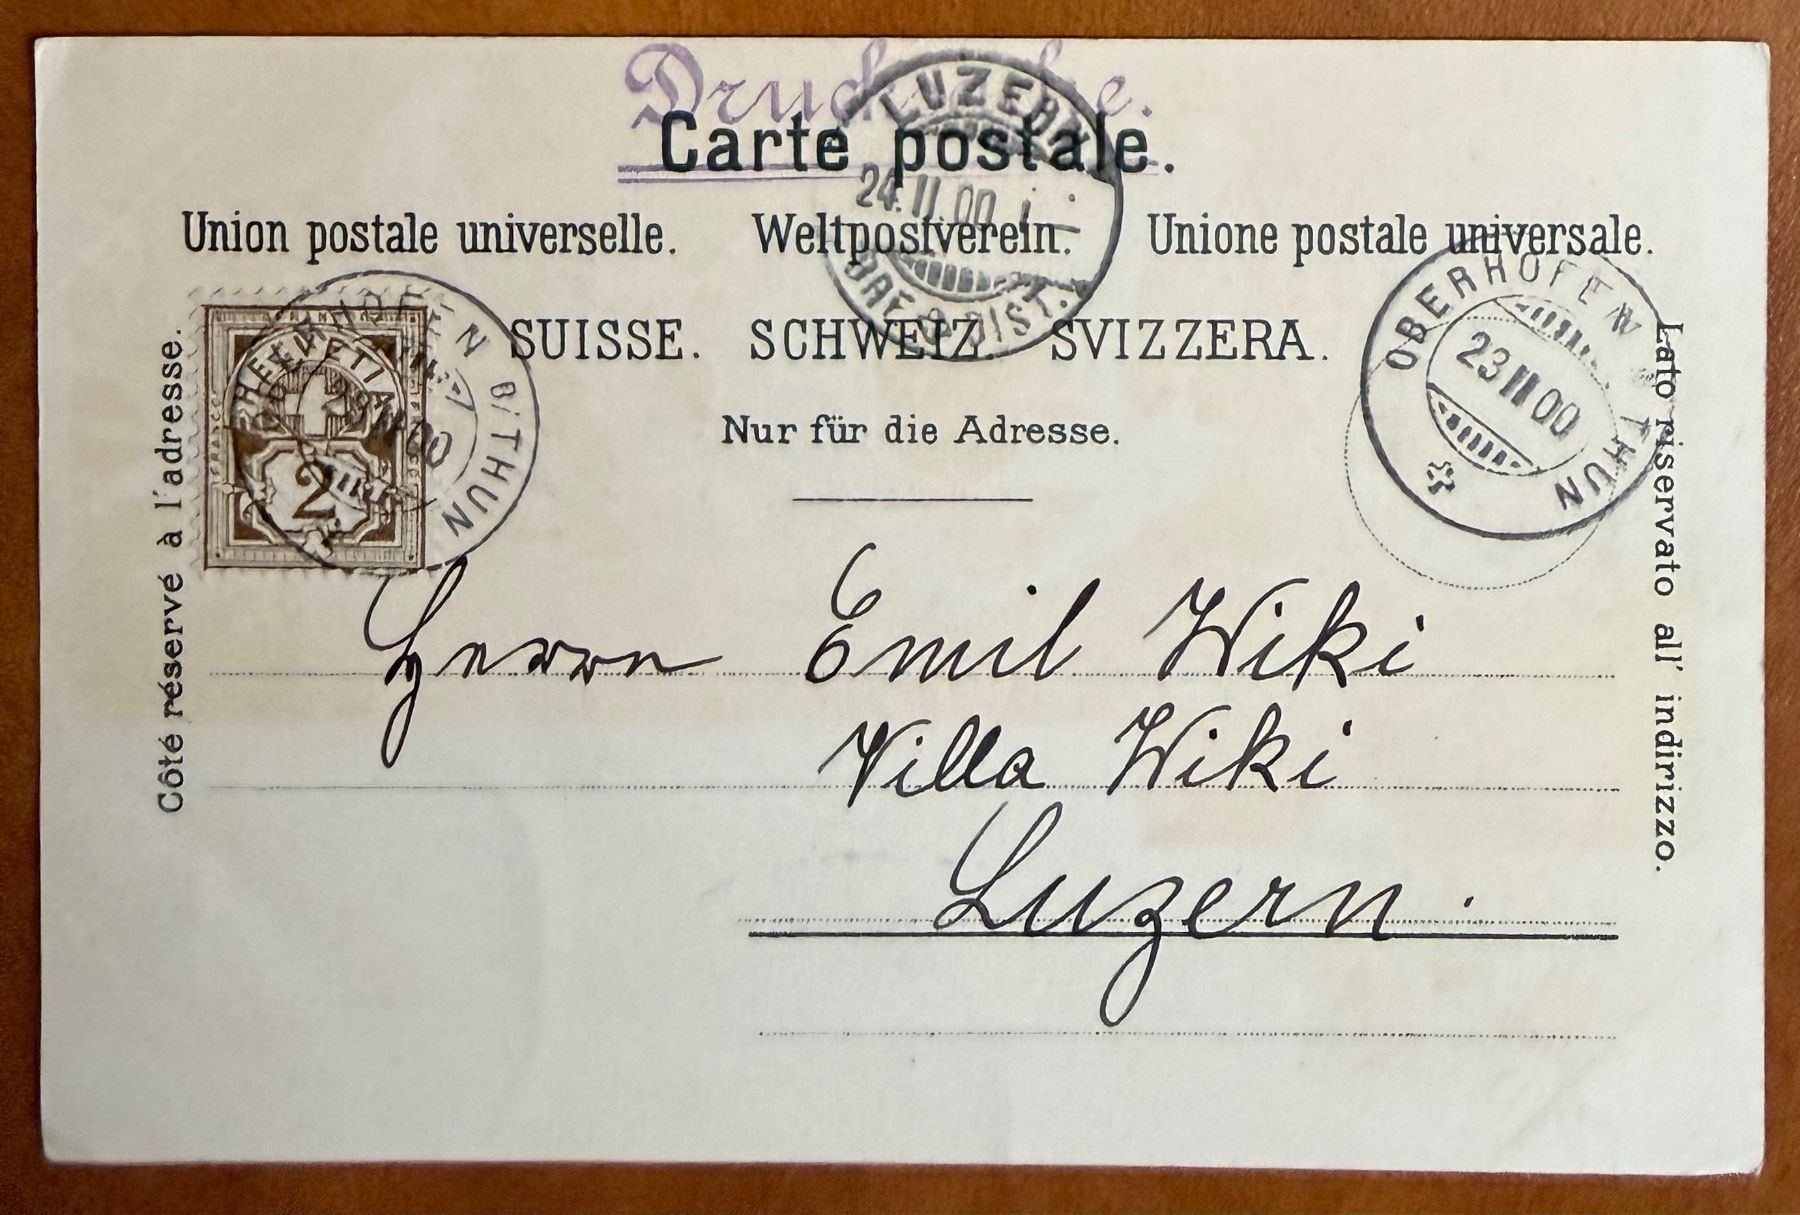 Drucksache.
Carte postale.
LUZERN
24.II.00
BRF. DIST.
Union postale universelle. Weltpostverein. Unione postale universale.
SUISSE. SCHWEIZ. SVIZZERA.
Nur für die Adresse.
Côté réservé à l'adresse.
Lato riservato all' indirizzo.
HELVETIA
FRANCO
2
OBERHOFEN B/THUN
OBERHOFEN B/THUN
23 II 00
Herrn Emil Wiki
Villa Wiki
Luzern.